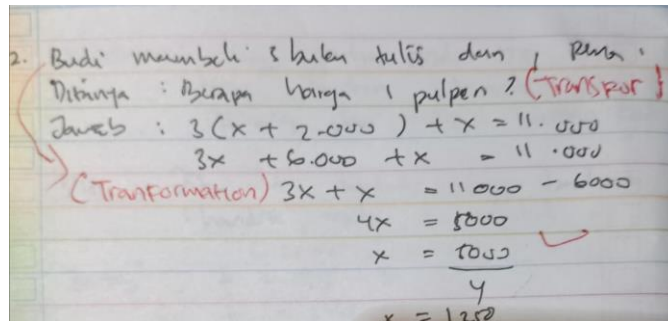 2. Budi membeli 3 buku tulis dan 1 pena.
Ditanya : Berapa harga 1 pulpen ? (Transfor)
Jawab : 3(x + 2.000) + x = 11.000
3x + 6.000 + x = 11.000
(Tranformation) 3x + x = 11000 - 6000
4x = 5000
x = 5000
4
x = 1250